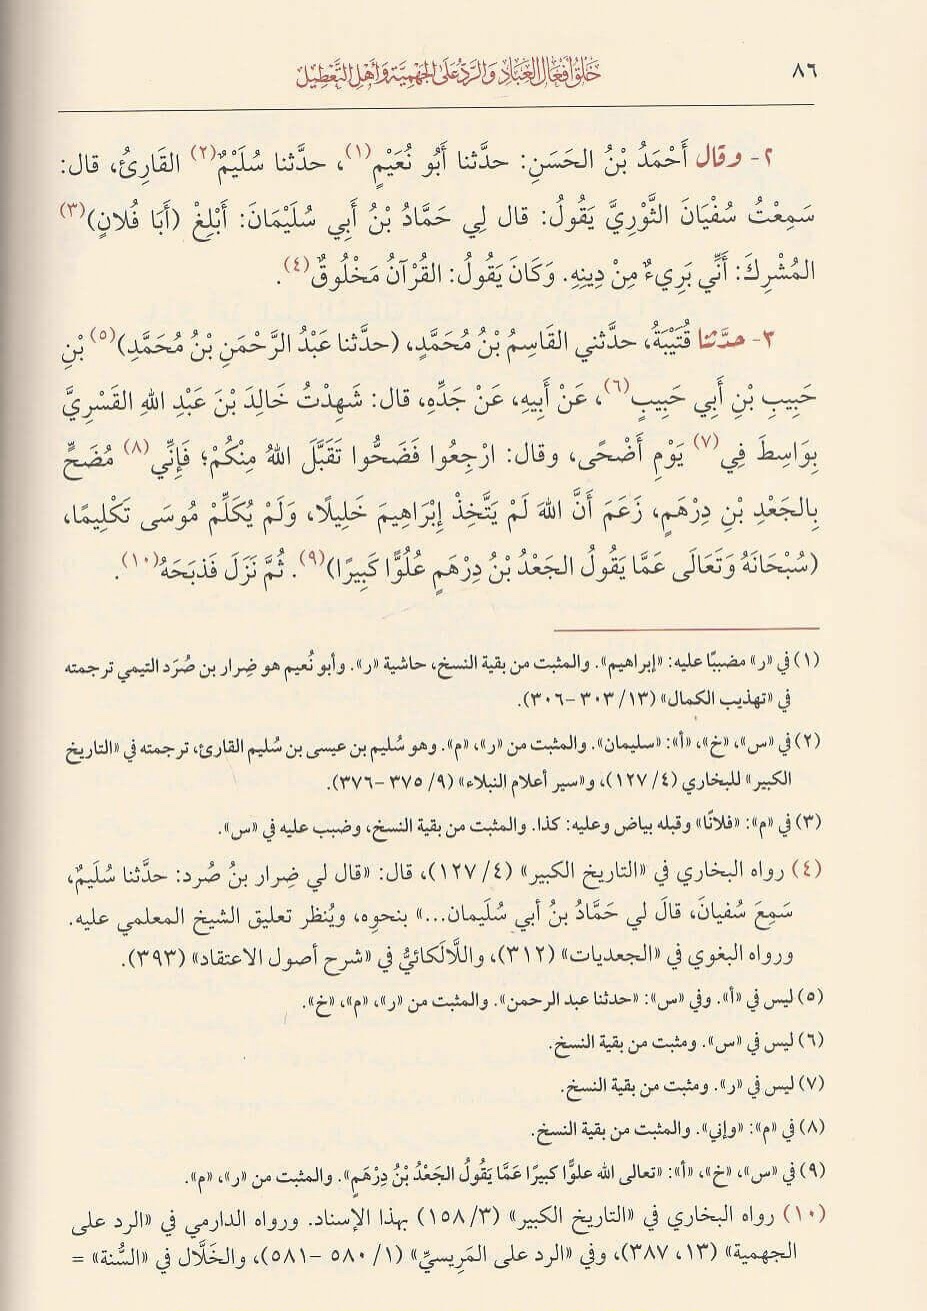 ٨٦
خَلْقُ أَفْعَالِ العِبَادِ وَالرَّدُّ عَلَى الجَهْمِيَّةِ وَأَهْلِ التَّعْطِيلِ
٢- وقال أَحْمَدُ بْنُ الحَسَنِ: حدَّثنا أَبُو نُعَيْمٍ(١)، حدَّثنا سُلَيْمٌ(٢) القَارِئُ، قال:
سَمِعْتُ سُفْيَانَ الثَّوْرِيَّ يَقُولُ: قال لِي حَمَّادُ بْنُ أَبِي سُلَيْمَانَ: أَبْلِغْ (أَبَا فُلَانٍ)(٣)
المُشْرِكَ: أَنِّي بَرِيءٌ مِنْ دِينِهِ. وَكَانَ يَقُولُ: القُرْآنُ مَخْلُوقٌ(٤).
٣- حدَّثنا قُتَيْبَةُ، حدَّثني القَاسِمُ بْنُ مُحَمَّدٍ، (حدَّثنا عَبْدُ الرَّحْمَنِ بْنُ مُحَمَّدِ)(٥) بْنِ
حَبِيبِ بْنِ أَبِي حَبِيبٍ(٦)، عَنْ أَبِيهِ، عَنْ جَدِّهِ، قال: شَهِدْتُ خَالِدَ بْنَ عَبْدِ اللهِ القَسْرِيَّ
بِوَاسِطَ فِي(٧) يَوْمِ أَضْحًى، وقال: ارْجِعُوا فَضَحُّوا تَقَبَّلَ اللهُ مِنْكُمْ؛ فَإِنِّي(٨) مُضَحٍّ
بِالجَعْدِ بْنِ دِرْهَمٍ، زَعَمَ أَنَّ اللهَ لَمْ يَتَّخِذْ إِبْرَاهِيمَ خَلِيلًا، وَلَمْ يُكَلِّمْ مُوسَى تَكْلِيمًا،
(سُبْحَانَهُ وَتَعَالَى عَمَّا يَقُولُ الجَعْدُ بْنُ دِرْهَمٍ عُلُوًّا كَبِيرًا)(٩). ثُمَّ نَزَلَ فَذبَحَهُ(١٠).
(١) في «ر» مضببًا عليه: «إبراهيم». والمثبت من بقية النسخ، حاشية «ر». وأبو نُعيم هو ضِرار بن صُرَد التيمي ترجمته
في «تهذيب الكمال» (١٣/ ٣٠٣ -٣٠٦).
(٢) في «س»، «خ»، «أ»: «سليمان». والمثبت من «ر»، «م». وهو سُليم بن عيسى بن سُليم القارئ، ترجمته في «التاريخ
الكبير» للبخاري (٤/ ١٢٧)، و«سير أعلام النبلاء» (٩/ ٣٧٥ -٣٧٦).
(٣) في «م»: «فلانًا» وقبله بياض وعليه: كذا. والمثبت من بقية النسخ، وضبب عليه في «س».
(٤) رواه البخاري في «التاريخ الكبير» (٤/ ١٢٧)، قال: «قال لي ضِرار بنُ صُرد: حدَّثنا سُلَيمٌ،
سَمِعَ سُفيانَ، قالَ لي حَمَّادُ بنُ أبي سُلَيمان...» بنحوِه، ويُنظر تعليق الشيخ المعلمي عليه.
ورواه البغوي في «الجعديات» (٣١٢)، واللَّالَكائيُّ في «شرح أصول الاعتقاد» (٣٩٣).
(٥) ليس في «أ». وفي «س»: «حدثنا عبد الرحمن». والمثبت من «ر»، «م»، «خ».
(٦) ليس في «س». ومثبت من بقية النسخ.
(٧) ليس في «ر». ومثبت من بقية النسخ.
(٨) في «م»: «وإني». والمثبت من بقية النسخ.
(٩) في «س»، «خ»، «أ»: «تعالى الله علوًّا كبيرًا عَمَّا يَقُولُ الجَعْدُ بْنُ دِرْهَمٍ». والمثبت من «ر»، «م».
(١٠) رواه البخاري في «التاريخ الكبير» (٣/ ١٥٨) بهذا الإسناد. ورواه الدارمي في «الرد على
الجهمية» (١٣، ٣٨٧)، وفي «الرد على المَرِيسيِّ» (١/ ٥٨٠ -٥٨١)، والخَلَّال في «السُّنة» =